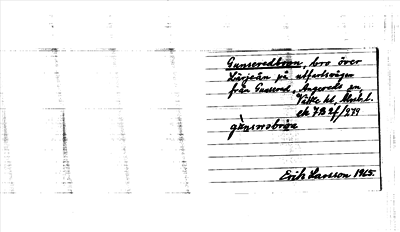 Gunseredbron, bro över
Lärjeån på utfartsvägen
från Gunsered, Angereds sn
Vättle hd, Älvsb. l.
ek 7B 2f/279
gúnsrəbróa
Erik Larsson 1965.